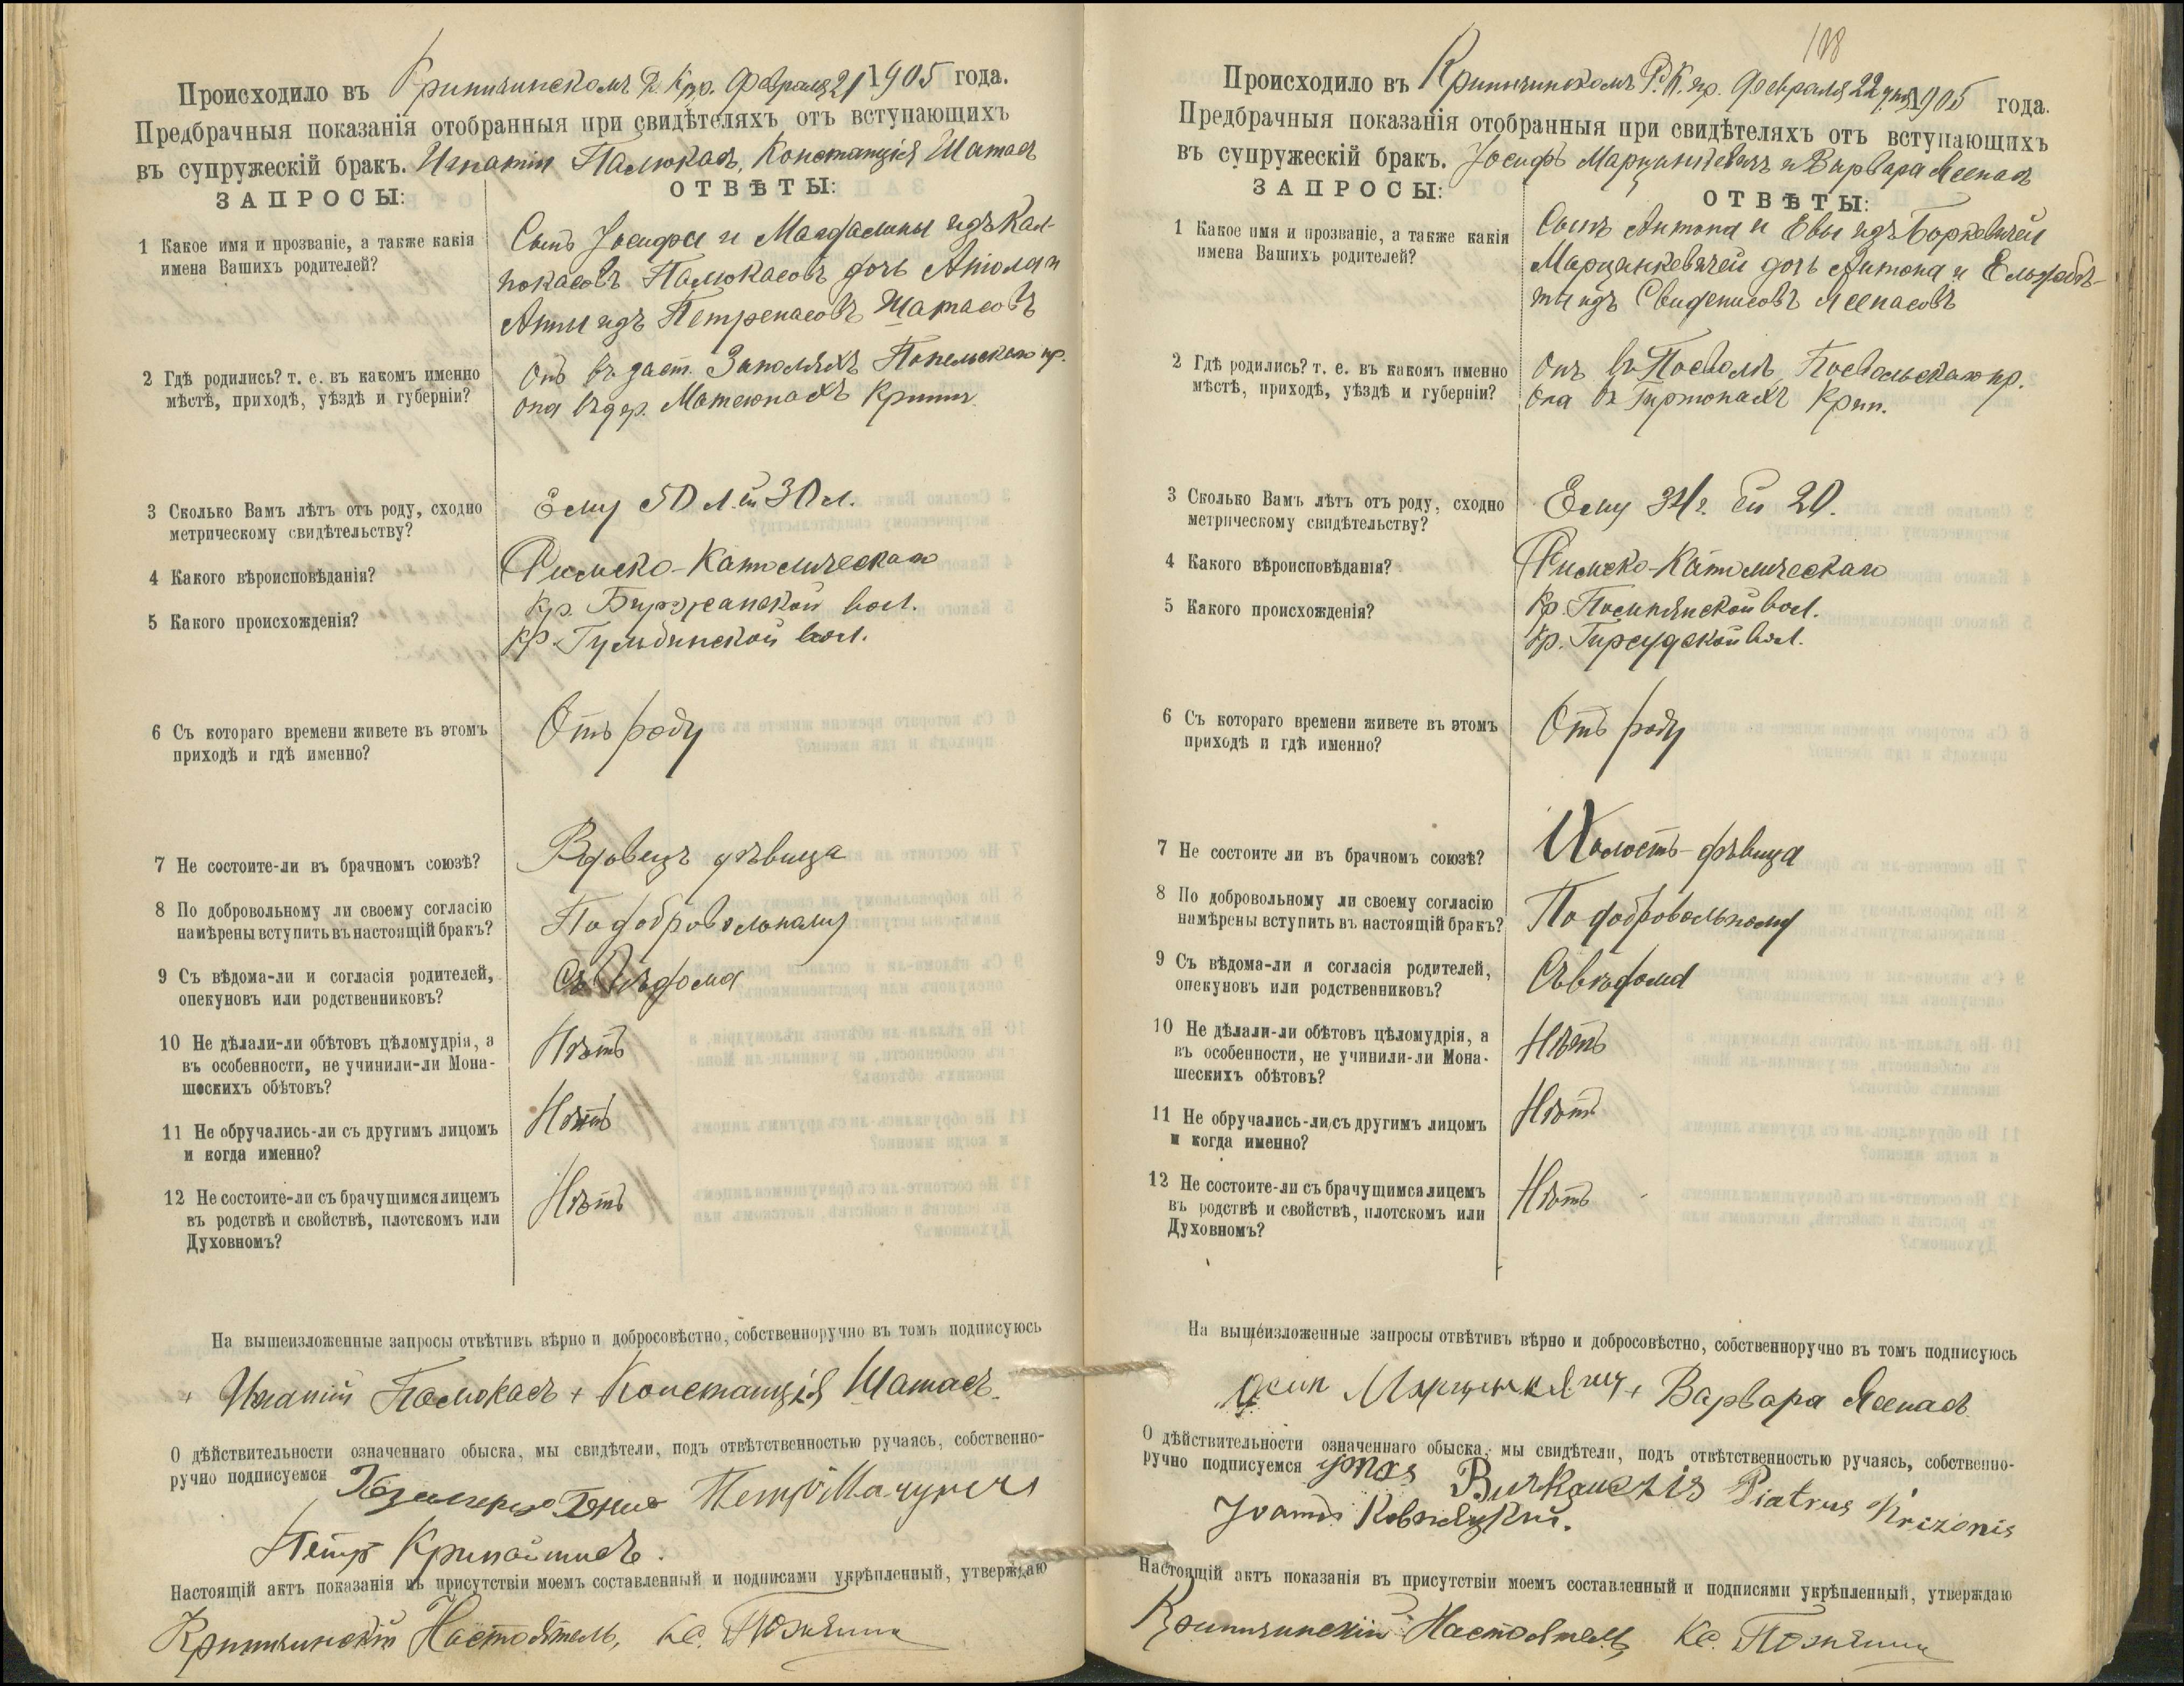 Происходило въ Крипчинскомъ Р. К. пр. Февраля 21 1905 года.
Предбрачныя показанія отобранныя при свидѣтеляхъ отъ вступающихъ
въ супружескій бракъ. Игнатій Палюкасъ, Констанція Шатасъ
ЗАПРОСЫ: ОТВѢТЫ:
1 Какое имя и прозваніе, а также какія
имена Вашихъ родителей?
Сынъ Іосифа и Магдалины изъ Кал-
покасовъ Палюкасовъ дочь
Анны изъ Петренасовъ Шатасовъ
2 Гдѣ родились? т. е. въ какомъ именно
мѣстѣ, приходѣ, уѣздѣ и губерніи?
Онъ въ заст. Попельскаго пр.
Она въ дер. Матеюнахъ Крипч.
3 Сколько Вамъ лѣтъ отъ роду, сходно
метрическому свидѣтельству?
Ему 50 л. ей 30 л.
4 Какого вѣроисповѣданія?
Римско-Католическаго
5 Какого происхожденія?
Кр. Биржанской вол.
Кр. Гульбинской вол.
6 Съ котораго времени живете въ этомъ
приходѣ и гдѣ именно?
Отъ роду
7 Не состоите-ли въ брачномъ союзѣ?
Вдовецъ дѣвица
8 По добровольному ли своему согласію
намѣрены вступить въ настоящій бракъ?
По добровольному
9 Съ вѣдома-ли и согласія родителей,
опекуновъ или родственниковъ?
Съ вѣдома
10 Не дѣлали-ли обѣтовъ цѣломудрія, а
въ особенности, не учинили-ли Мона-
шескихъ обѣтовъ?
Нѣтъ
11 Не обручались-ли съ другимъ лицомъ
и когда именно?
Нѣтъ
12 Не состоите-ли съ брачущимся лицемъ
въ родствѣ и свойствѣ, плотскомъ или
Духовномъ?
Нѣтъ
На вышеизложенные запросы отвѣтивъ вѣрно и добросовѣстно, собственноручно въ томъ подписуюсь
+ Игнатій Палюкасъ + Констанція Шатасъ
О дѣйствительности означеннаго обыска, мы свидѣтели, подъ отвѣтственностью ручаясь, собственно-
ручно подписуемся
Петръ
Настоящій актъ показанія въ присутствіи моемъ составленный и подписами укрѣпленный, утверждаю
Крипчинскій Настоятель, Кс.
108
Происходило въ Крипчинскомъ Р. К. пр. Февраля 22 дня 1905 года.
Предбрачныя показанія отобранныя при свидѣтеляхъ отъ вступающихъ
въ супружескій бракъ. Іосифъ Марцинкевичъ и Варвара Ясенасъ
ЗАПРОСЫ: ОТВѢТЫ:
1 Какое имя и прозваніе, а также какія
имена Вашихъ родителей?
Сынъ Антона и Евы изъ Боркевичей
Марцинкевичей дочь Антона и Ельзабѣ-
ты изъ Свиденисовъ Ясенасовъ
2 Гдѣ родились? т. е. въ какомъ именно
мѣстѣ, приходѣ, уѣздѣ и губерніи?
Онъ въ Посволѣ Посвольскаго пр.
Она въ Гиртюнахъ Крип.
3 Сколько Вамъ лѣтъ отъ роду, сходно
метрическому свидѣтельству?
Ему 34 г. ей 20.
4 Какого вѣроисповѣданія?
Римско-Католическаго
5 Какого происхожденія?
Кр. вол.
Кр. Гирсудской вол.
6 Съ котораго времени живете въ этомъ
приходѣ и гдѣ именно?
Отъ роду
7 Не состоите ли въ брачномъ союзѣ?
Холостъ - дѣвица
8 По добровольному ли своему согласію
намѣрены вступить въ настоящій бракъ?
По добровольному
9 Съ вѣдома-ли и согласія родителей,
опекуновъ или родственниковъ?
Съ вѣдома
10 Не дѣлали-ли обѣтовъ цѣломудрія, а
въ особенности, не учинили-ли Мона-
шескихъ обѣтовъ?
Нѣтъ
11 Не обручались-ли съ другимъ лицомъ
и когда именно?
Нѣтъ
12 Не состоите-ли съ брачущимся лицемъ
въ родствѣ и свойствѣ, плотскомъ или
Духовномъ?
Нѣтъ
На вышеизложенные запросы отвѣтивъ вѣрно и добросовѣстно, собственноручно въ томъ подписуюсь
+ Варвара Ясенасъ
О дѣйствительности означеннаго обыска, мы свидѣтели, подъ отвѣтственностью ручаясь, собственно-
ручно подписуемся Piatrus Krizonis
Настоящій актъ показанія въ присутствіи моемъ составленный и подписями укрѣпленный, утверждаю
Крипчинскій Настоятель Кс.